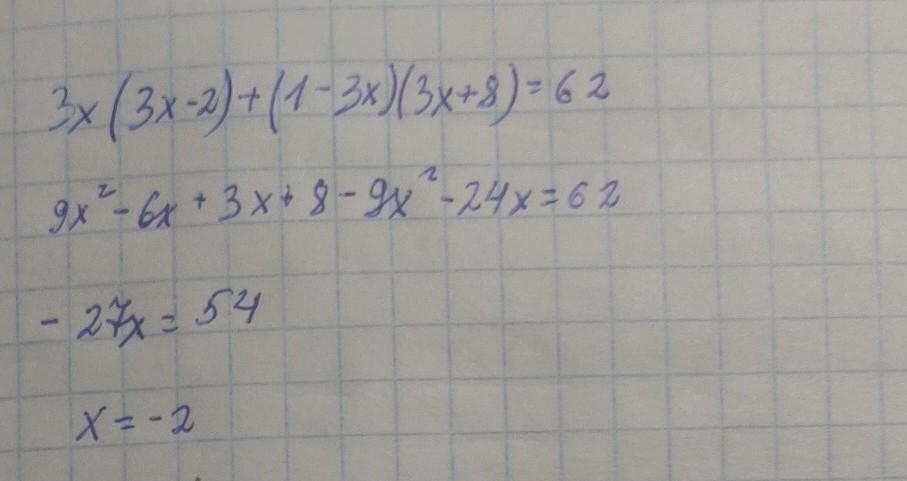 3x(3x-2)+(1-3x)(3x+8)=62
9x²-6x+3x+8-9x²-24x=62
-27x=54
x=-2